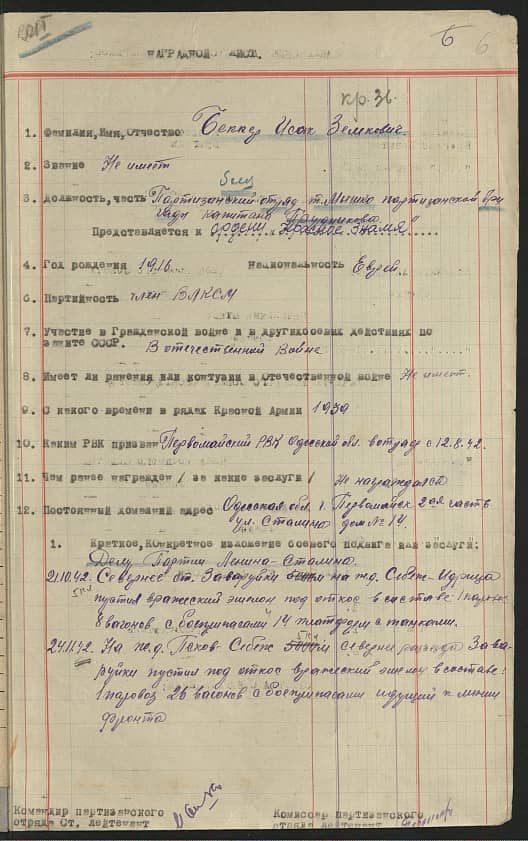 6 6
НАГРАДНОЙ ЛИСТ.
кр. 3б.
1. Фамилия, Имя, Отчество Беккер Исак Зелкович
2. Звание Не имеет
3. Должность, часть Партизанский отряд т. Мишко партизанской бри
гады капитана
Представляется к ордену "Красное Знамя"
4. Год рождения 1916 Национальность Еврей.
6. Партийность член ВЛКСМ
7. Участие в Гражданской войне и в других боевых действиях по
защите СССР. В отечественной Войне
8. Имеет ли ранения или контузии в Отечественной войне Не имеет.
9. С какого времени в рядах Красной Армии 1939
10. Каким РВК призван Первомайский РВК Одесской обл. в отряде с 12.8.42.
11. Чем ранее награжден / за какие заслуги / Не награждался
12. Постоянный домашний адрес Одесская обл. г. Первомайск 2ая часть
ул. Сталина дом № 14
1. Краткое, конкретное изложение боевого подвига или заслуги:
Делу Партии Ленина-Сталина.
21.10.42. Севернее ст. Заваруйки 5км на ж.д. Себеж-Идрица
пустил вражеский эшелон под откос в составе: 1 паровоз
8 вагонов с боеприпасами 14 платформ с танками.
24.11.42. На ж.д. Псков-Себеж 5км севернее разъезда Зава-
руйки пустил под откос вражеский эшелон в составе:
1 паровоз 26 вагонов с боеприпасами идущий к линии
фронта
Командир партизанского
отряда Ст. лейтенант
Комиссар партизанского
отряда лейтенант